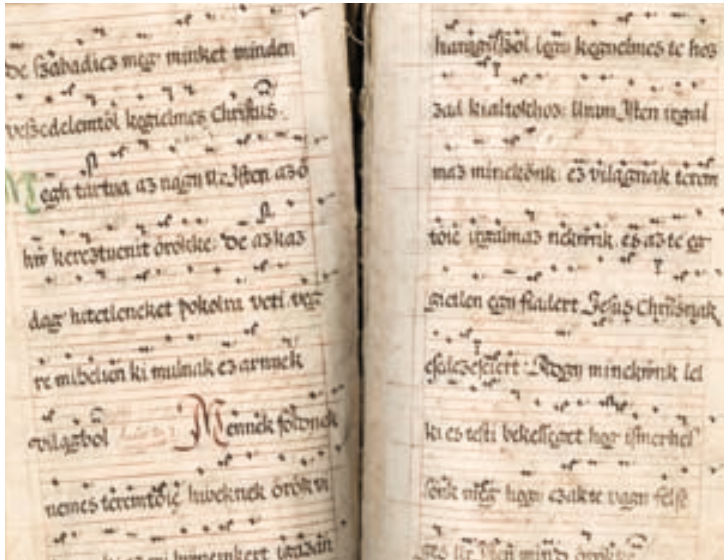 de szabadicz meg minket minden
veszedelemtöl kegielmes Christus.
Megh tartua az nagy Ur Isten az ö
hiv kereztuenit örökke. De az kaz
dag hitetleneket pokolra veti veg
re mibelön ki mulnak ez arniek
vilagbol Mennek földnek
nemes teremtöie hiveknek örök vi
haragiszol legy kegielmes te hoz
zad kialtokhoz. Urunk Isten irgal
maz minekönk. ez vilagnak terem
töie irgalmaz nekrönk. es az te eg
gietlen egy fiadert Jesus Christusnak
minekrönk lel
ki es testi bekesseget hog ismerhes
sönk meg hogy czak te vagy
Ur Isten mind örökke